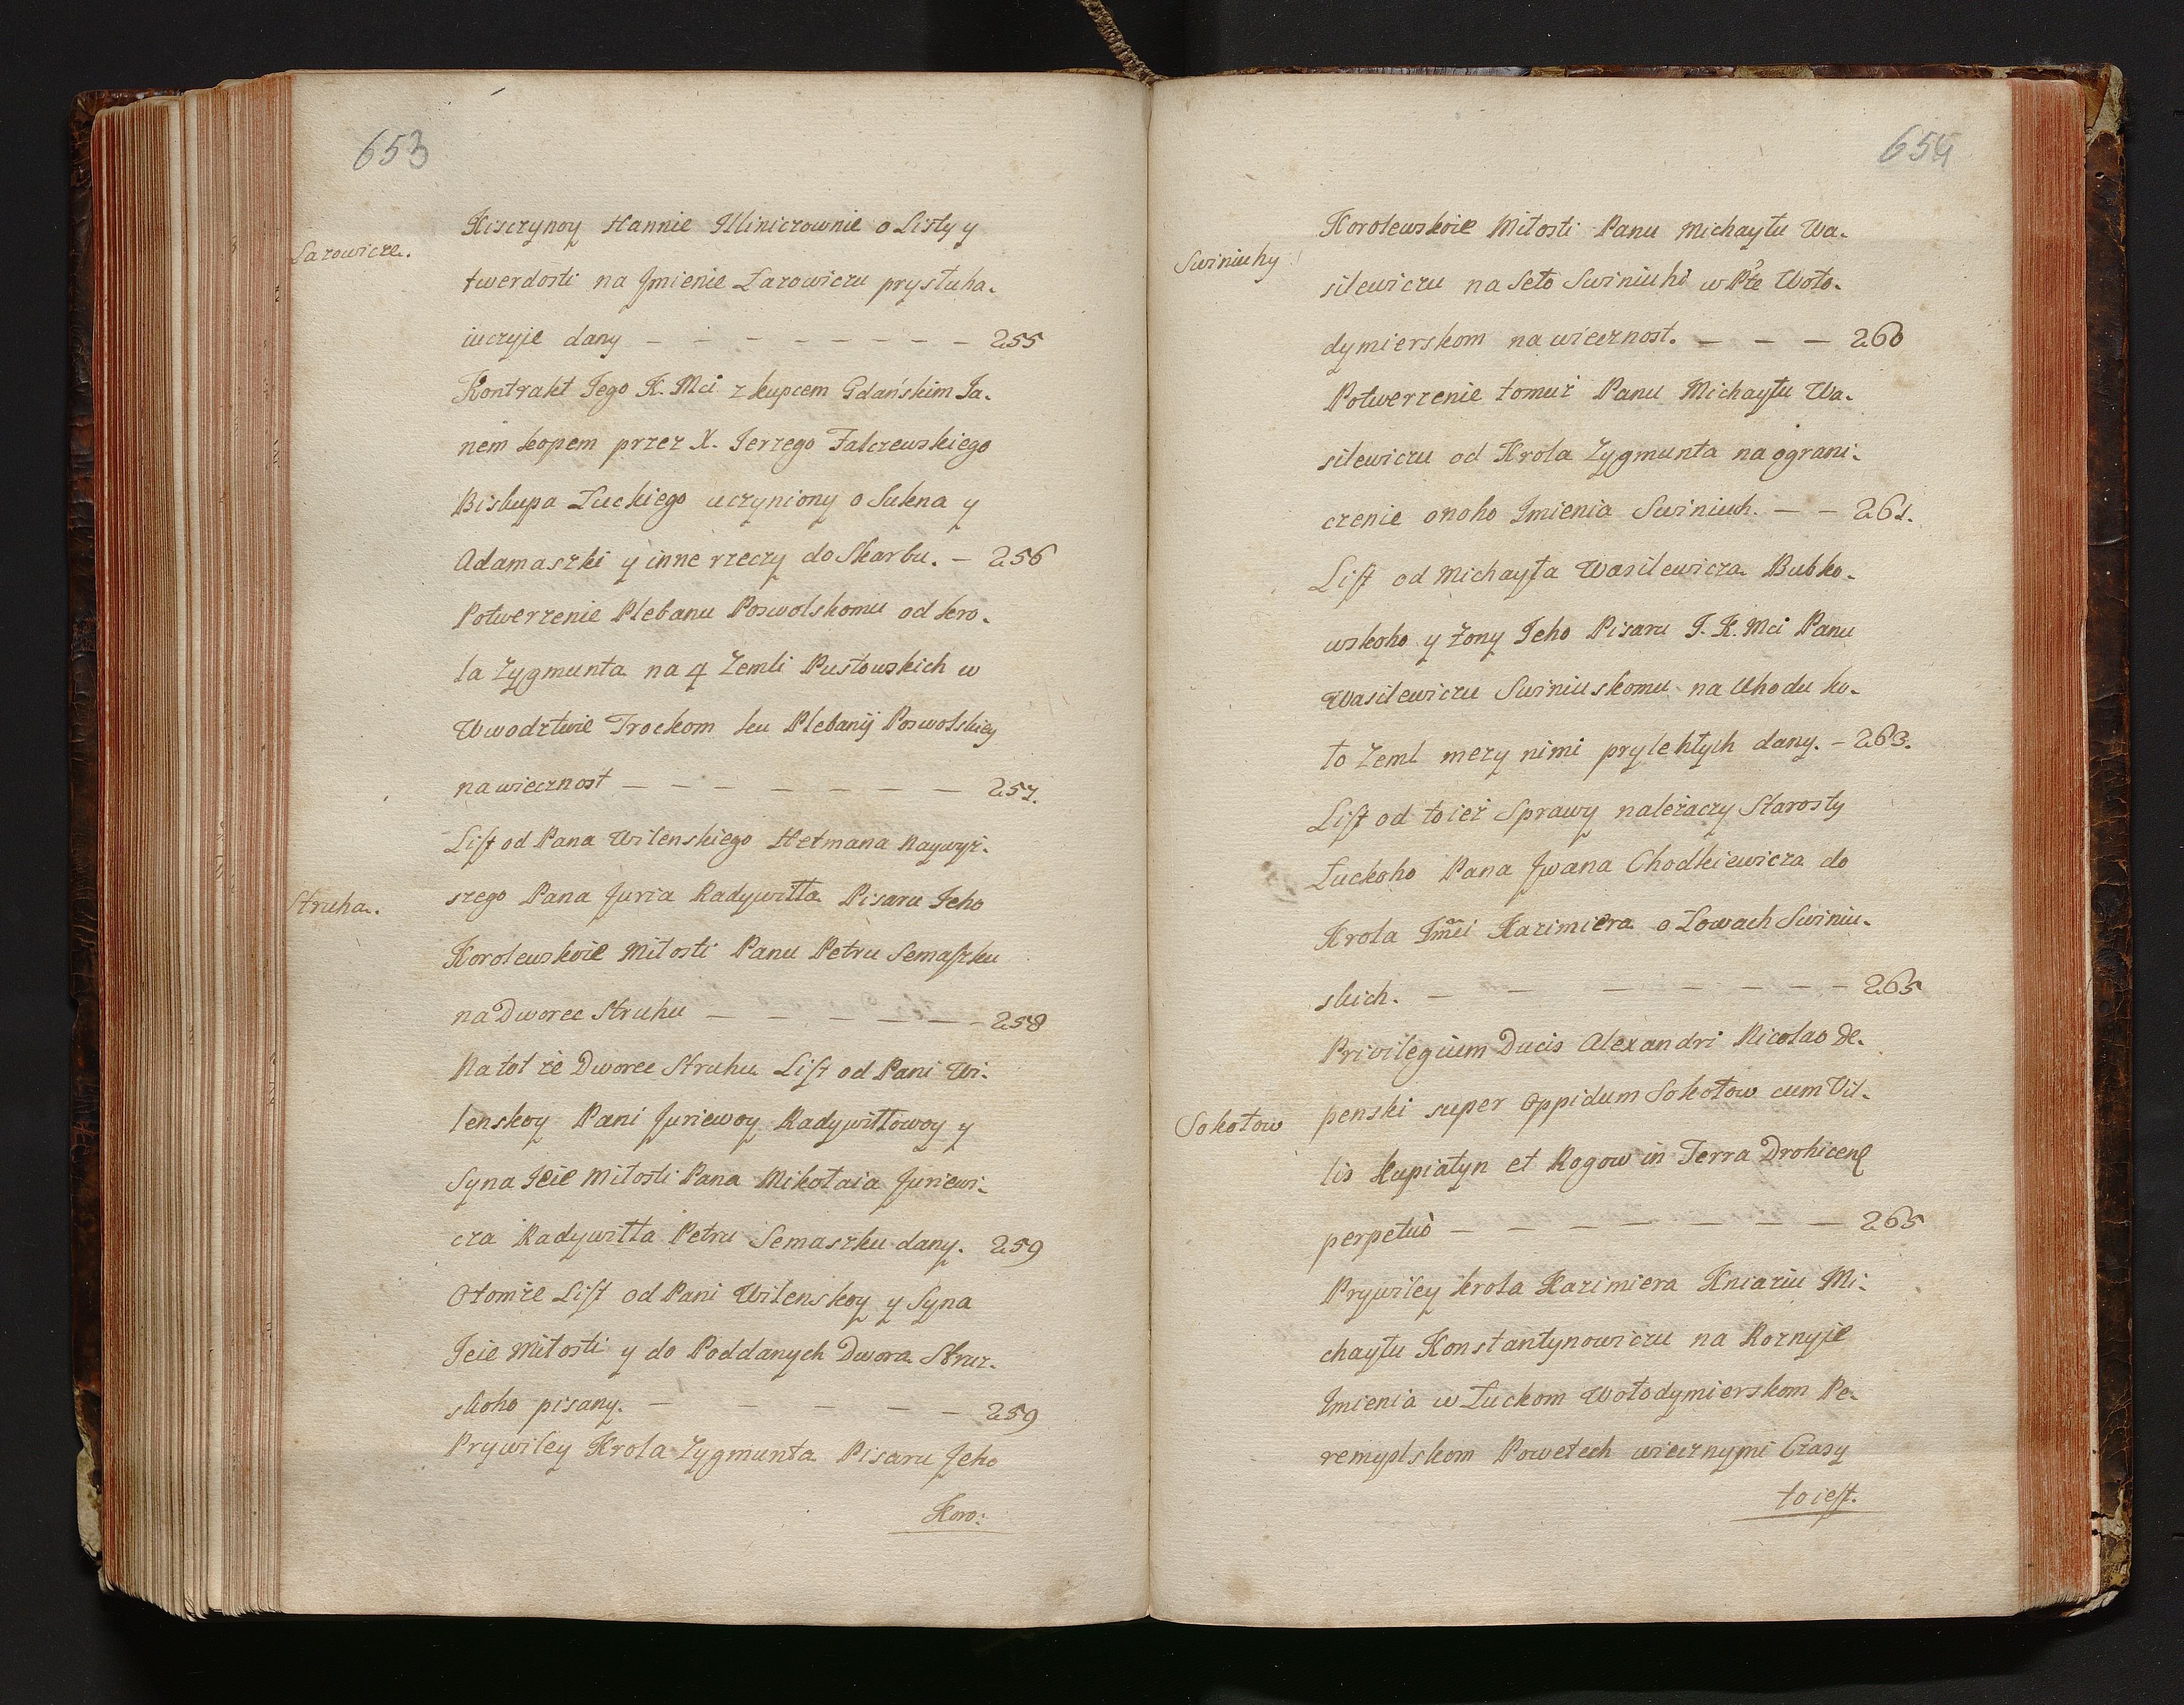 653
Kisczynoy Hannie Illiniczownie o Listy y
Łazowicze.
twerdosti na Jmienie Łazowiczu prysłuha-
iuczyie dany — — — — — — — — 255
Kontrakt Jego K. Mci z kupcem Gdańskim Ja-
nem kopem przez X. Jerzego Falczewskiego
Biskupa Łuckiego uczyniony o Sukna y
Adamaszki y inne rzeczy do Skarbu. — 256
Potwerzenie Plebanu Poswolskomu od kro-
la Zygmunta na 4 Zemli Pustowskich w
Wwodztwie Trockom ku Plebanij Poswolskiey
na wiecznost — — — — — — — — 257.
List od Pana Wilenskiego Hetmana Naywyż-
Struha.
szego Pana Juria Radywiłła Pisaru Jeho
Korolewskoie Miłosti Panu Petru Semaszku
na Dworec Struhu — — — — — — 258
Na tot że Dworec Struhu List od Pani Wi-
lenskoy Pani Juriewoy Radywiłłowoy y
Syna Jeie Miłosti Pana Mikołaia Juriewi-
cza Radywiłła Petru Semaszku dany. 259
Otomże List od Pani Wilenskoy y Syna
Jeie Miłosti y do Poddanych Dwora Struz-
skoho pisany. — — — — — 259
Prywiley Krola Zygmunta Pisaru Jeho
Koro:
654
Korolewskoie Miłosti Panu Michayłu Wa-
Swiniuhy
silewiczu na Seło Swiniuhi w Pte Woło-
dymierskom na wiecznost. — — — 260
Potwerzenie tomuż Panu Michayłu Wa-
silewiczu od Krola Zygmunta na ograni-
czenie onoho Jmienia Swiniuch. — — 261.
List od Michayła Wasilewicza Bubko-
wskoho y Żony Jeho Pisaru J. K. Mci Panu
Wasilewiczu Swiniuskomu na Uhodu ko-
ło Zeml mezy nimi prylehłych dany. — 263.
List od toież Sprawy należaczy Starosty
Łuckoho Pana Jwana Chodkiewicza do
Krola Jmci Kazimiera o Łowach Swiniu-
skich. — — — — — — — 265
Privilegium Ducis Alexandri Nicolao De-
Sokołow
penski super Oppidum Sokołow cum Vil-
lis Kupiatyn et Rogow in Terra Drohicens
perpetuò — — — — — — — 265
Prywiley krola Kazimiera Kniaziu Mi-
chayłu Konstantynowiczu na Roznyie
Jmienia w Łuckom Wołodymierskom Pe-
remyslskom Powetech wiecznymi Czasy
to iest.